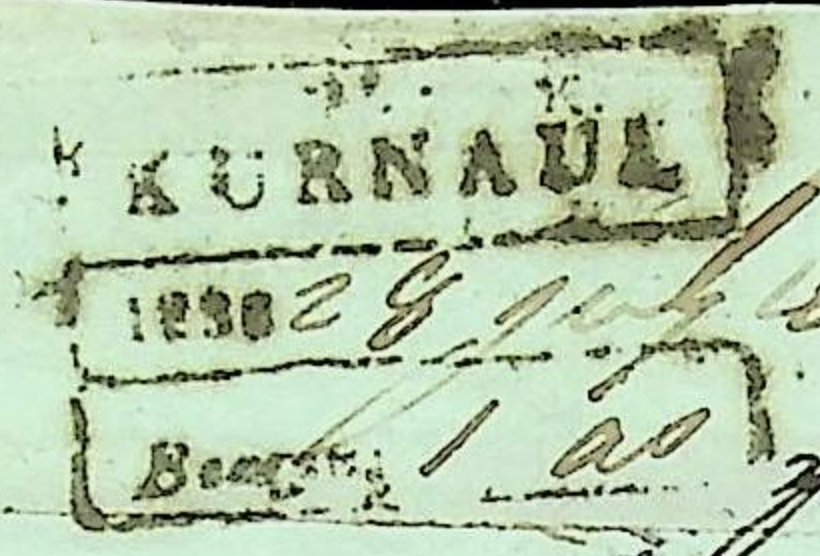 KURNAUL
1838 28 July
Bearing 1 as